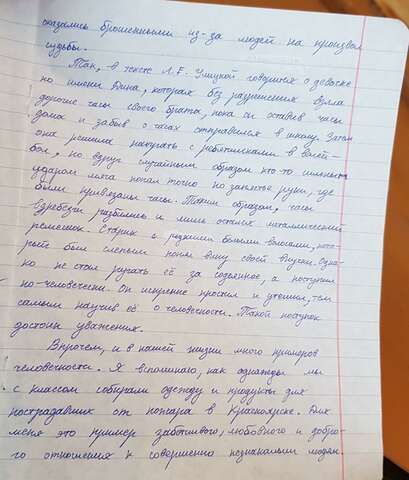 оказались брошенными из-за людей на произвол
судьбы.
Так, в тексте Л.Е. Улицкой говорится о девочке
по имени Дина, которая без разрешения взяла
дорогие часы своего брата, пока он оставив часы
дома и забыв о часах отправился в школу. Затем
она решила поиграть с ребятишками в волей-
бол, но вдруг случайным образом кто-то сильным
ударом мяча попал точно по запястье руки, где
были привязаны часы. Таким образом, часы
вдребезги разбились и лишь остался металлический
ремешок. Старик с редкими белыми волосами, кото-
рый был слепым понял вину своей внучки. Одна-
ко не стал ругать её за содеянное, а поступил
по-человечески. Он искренне простил и утешил, тем
самым научив её о человечности. Такой поступок
достоин уважения.
Впрочем, и в нашей жизни много примеров
человечности. Я вспоминаю, как однажды мы
с классом собирали одежду и продукты для
пострадавших от пожара в Красноярске. Для
меня это пример заботливого, любовного и добро-
го отношения к совершенно незнакомым людям.